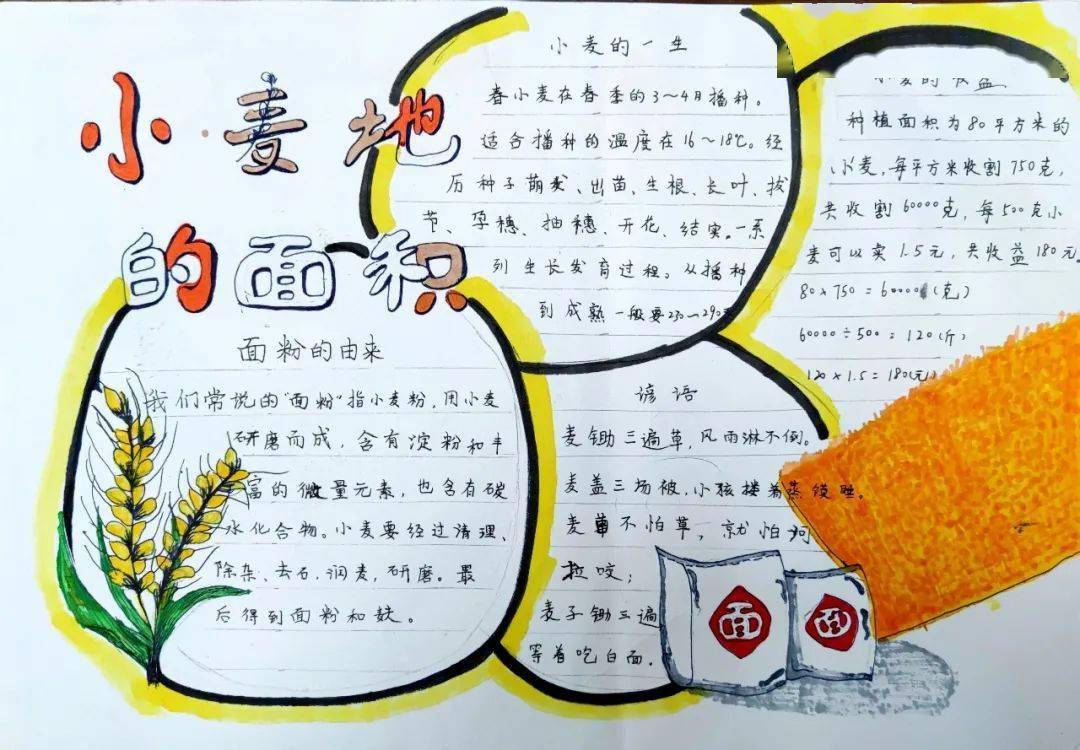 小麦地
的面积
小麦的一生
春小麦在春季的3～4月播种。
适合播种的温度在16～18℃。经
历种子萌发、出苗、生根、长叶、拔
节、孕穗、抽穗、开花、结实。一系
列生长发育过程。从播种
到成熟一般要230～290天
小麦的收益
种植面积为80平方米的
小麦,每平方米收割750克,
共收割60000克,每500克小
麦可以卖1.5元,共收益180元。
80×750=60000(克)
60000÷500=120(斤)
120×1.5=180(元)
面粉的由来
我们常说的"面粉"指小麦粉,用小麦
研磨而成,含有淀粉和丰
富的微量元素,也含有碳
水化合物。小麦要经过清理、
除杂、去石、润麦,研磨。最
后得到面粉和麸。
谚语
麦锄三遍草,风雨淋不倒。
麦盖三场被,小孩搂着蒸馍睡。
麦苗不怕草,就怕坷
拉咬;
麦子锄三遍
等着吃白面.
面
面